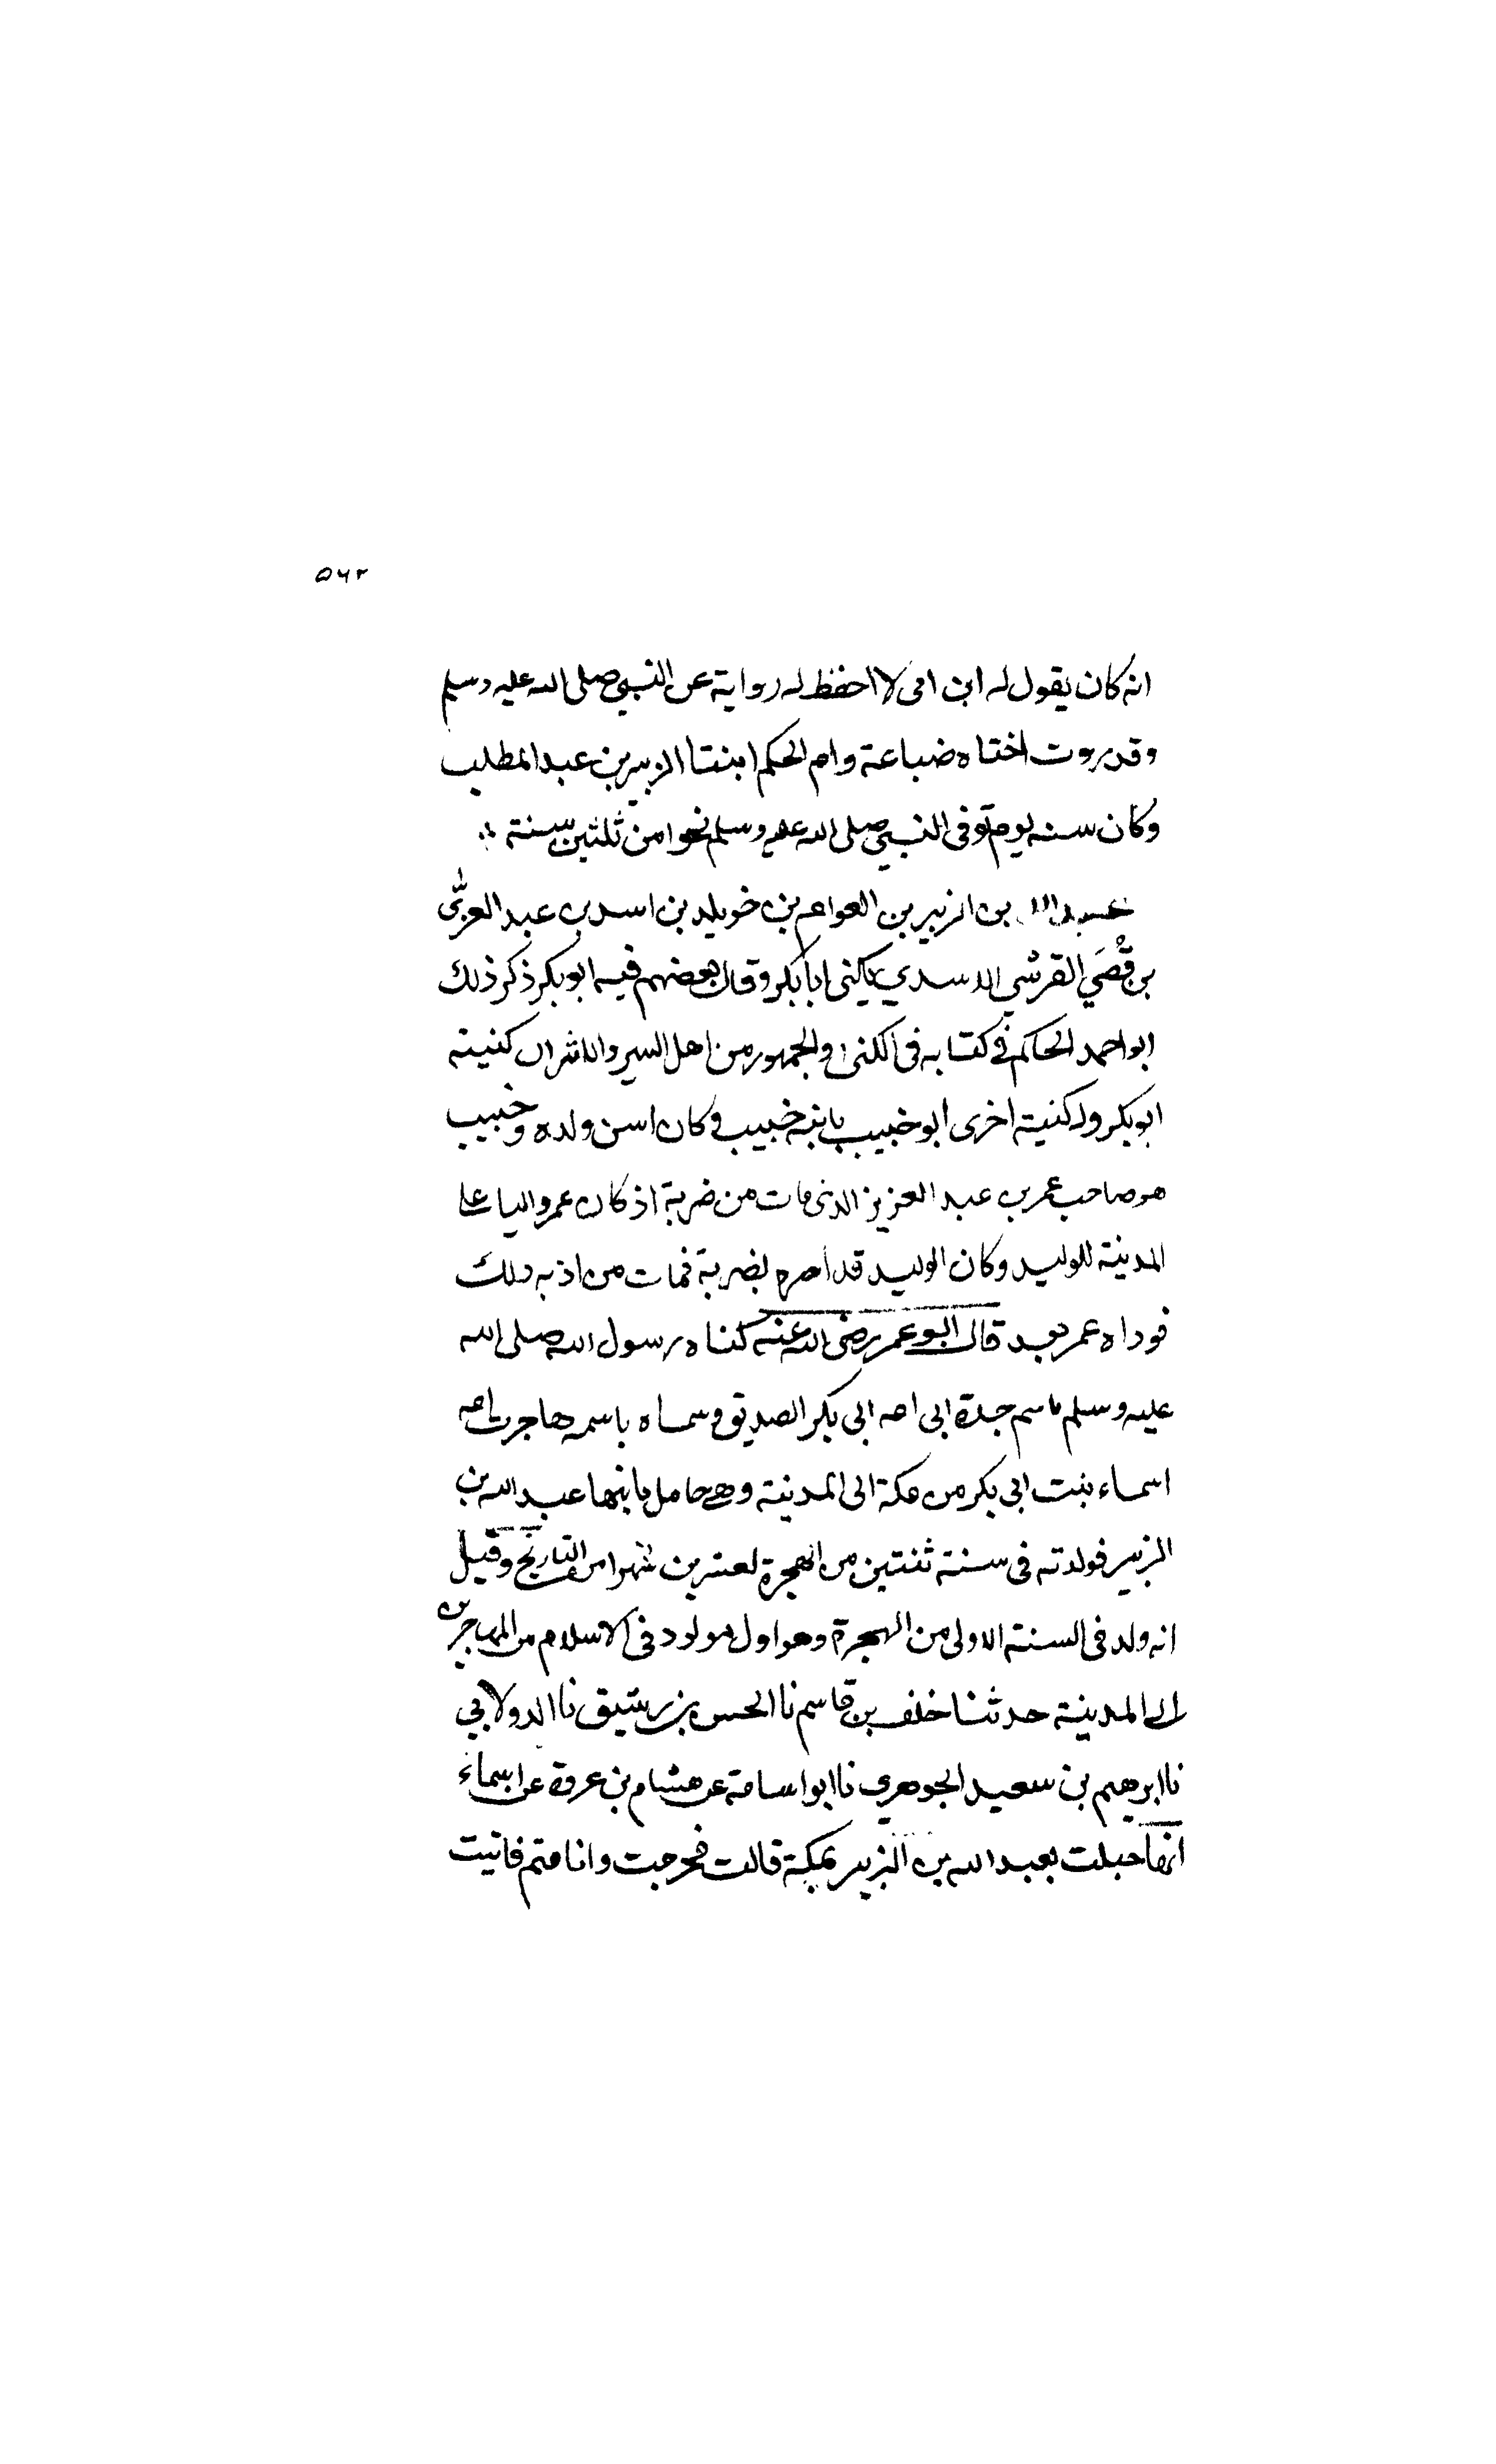 ٥٦٢
انه كان يقول له ابن امى لا احفظ له رواية عن النبى صلى الله عليه وسلم
وقد روت اختاه ضباعة وام الحكم ابنتا الزبير بن عبد المطلب
وكان سنه يوم توفى النبى صلى الله عليه وسلم نحوا من ثلثين سنة
عبد الله بن الزبير بن العوام بن خويلد بن اسد بن عبد العزّى
بن قُصَي القرشي الاسدي يكنى ابا بكر وقال بعضهم فيه ابو بكر ذكر ذلك
ابو احمد الحاكم في كتابه فى الكنى والجمهور من اهل السير والاثر ان كنيته
ابو بكر وله كنية اخرى ابو خبيب بابنه خبيب وكان اسن ولده وخبيب
هو صاحب عمر بن عبد العزيز الذى مات من ضربة اذ كان عمر واليا على
المدينة للوليد وكان الوليد قد امره بضربة فمات من اذبه ذلك
فوداه عمر بعد قال ابو عمر رضى الله عنه كناه رسول الله صلى الله
عليه وسلم باسم جدة ابى امه ابى بكر الصديق وسماه باسمه هاجرت امه
اسماء بنت ابى بكر من مكة الى المدينة وهي حامل بابنها عبد الله بن
الزبير فولدته فى سنة ثنتين من الهجرة لعشرين شهرا من التاريخ وقيل
انه ولد فى السنة الاولى من الهجرة وهو اول مولود فى الاسلام من المهاجرين
الى المدينة حدثنا خلف بن قاسم نا الحسن بن رشيق نا الدولابي
نا ابرهيم بن سعيد الجوهري نا ابو اسامة عن هشام بن عروة عن اسماء
انها حبلت بعبد الله بن الزبير بمكة قالت فخرجت وانا متم فاتيت